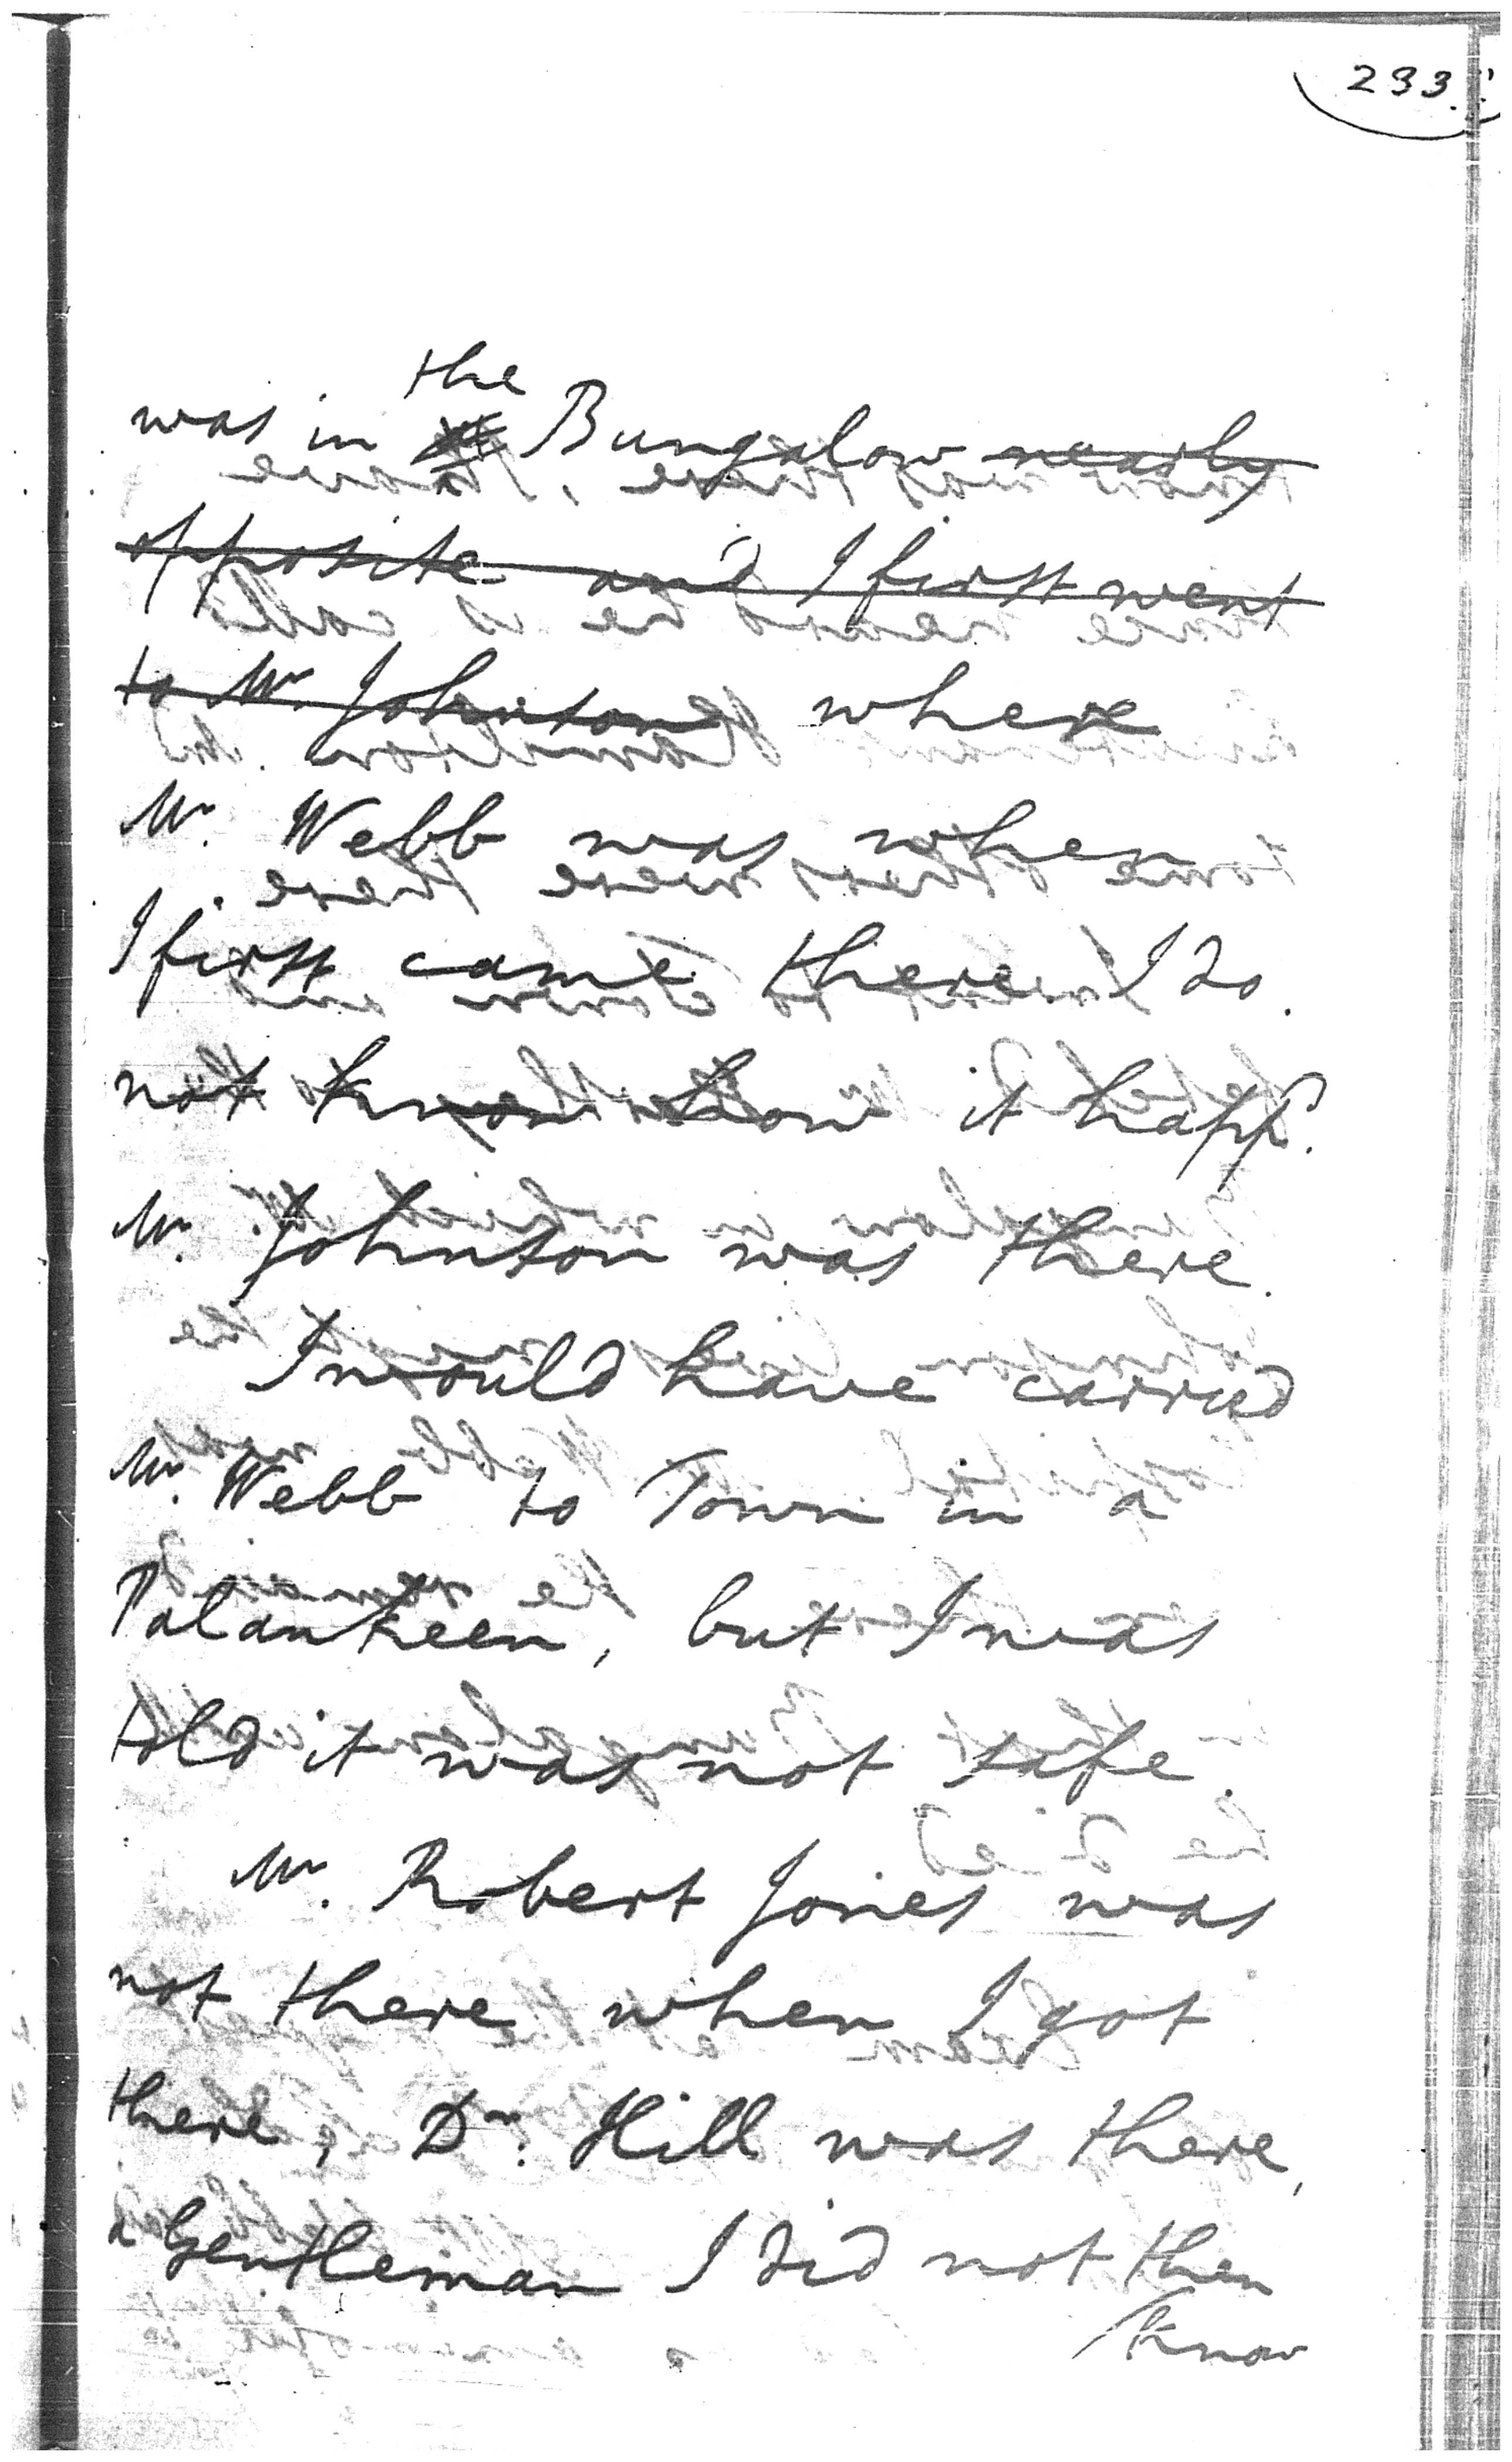 233.
the
was in a Bungalow nearly
opposite and I first went
to Mr. Johnston where
Mr. Webb was when
I first came there I do
not know how it happd.
Mr. Johnston was there.
I would have carried
Mr. Webb to Town in a
Palankeen, but I was
told it was not safe.
Mr. Robert Jones was
not there when I got
there, Dr. Hill was there,
a Gentleman I did not then
know